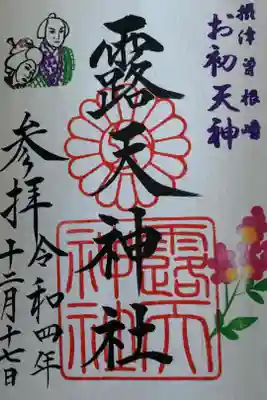 摂津曽根崎
お初天神
露天神社
露天神社
参拝
令和四年
十二月十七日